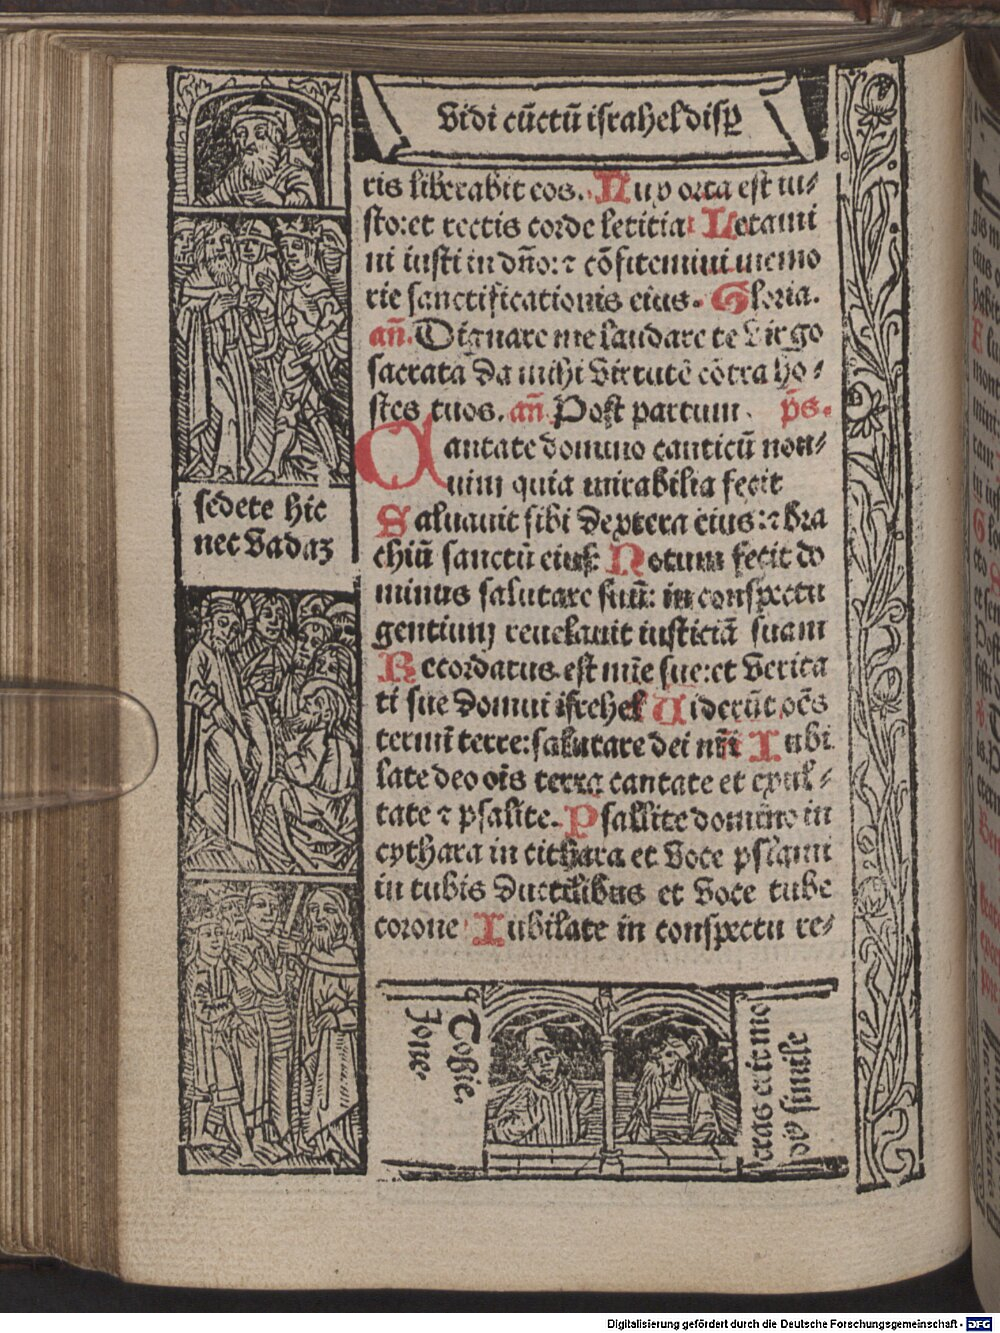 Vidi cūctū israhel disꝑ
ris liberabit eos. Lux orta est iu⸗
sto: et rectis corde letitia: Letami
ni iusti in dn̄o: ⁊ cōfitemini memo
rie sanctificationis eius. Gloria.
an̄. Dignare me laudare te Virgo
sacrata da mihi Virtutē cōtra ho⸗
stes tuos. an̄ Post partum. p̄s.
Cantate domino canticū nou⸗
uim quia mirabilia fecit
Saluauit sibi dextera eius: ⁊ bra
chiū sanctū eius: Notum fecit do
minus salutare suū: in conspectu
gentium reuelauit iusticiā suam
Recordatus est mīe sue: et Verita
ti sue domui isrehel Viderūt oēs
termī terre: salutare dei nr̄i Iubi
late deo oīs terra cantate et exul⸗
tate ⁊ psalite. Psallite domino in
cythara in cithara et Voce psalmi
in tubis ductilibus et Voce tube
corone Iubilate in conspectu re⸗
sedete hic
nec Vadaꝫ
Tobie.
Ione.
cras erit mo
simile
Digitalisierung gefördert durch die Deutsche Forschungsgemeinschaft - DFG